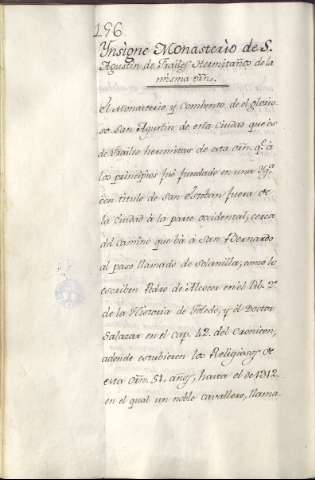 196
Ynsigne Monasterio de S.
Agustin de Frailes Hermitaños de la
misma orn.
El Monasterio y Combento de el glorio
so San Agustin de esta Ciudad que es
de Frailes hermitaños de esta orn. q.e à
los principios fuè fundado en una Ygl.a
con titulo de San Esteban fuera de
la Ciudad à la parte occidental, cerca
del camino que bà à San Bernardo
al paso llamado de Solanilla, como lo
escriben Pedro de Alcocer en el lib. 2.o
de la Historia de Toledo, y el Doctor
Salazar en el cap. 42. del Cronicon,
adonde estubieron los Religiosos de
esta orn. 51. años, hasta el de 1312.
en el qual un noble cavallero, llama